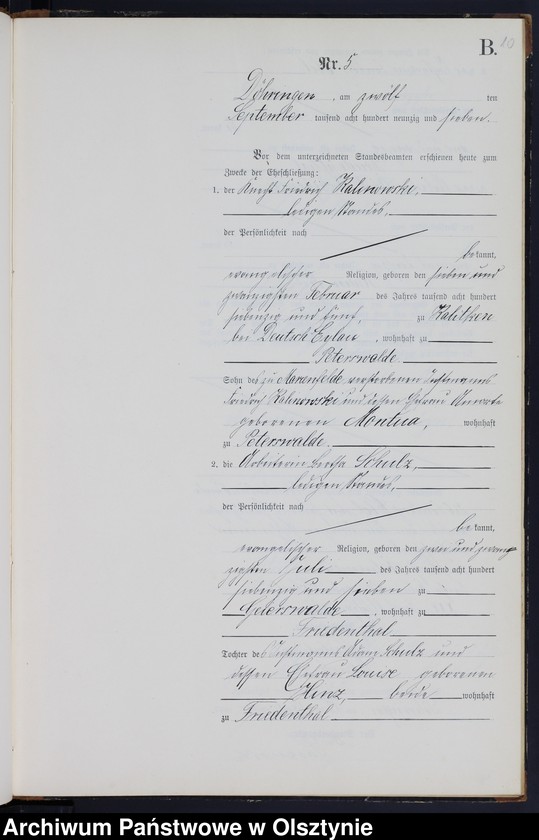 B. 10
Nr. 5
Döhrengen, am zwölf ten
September tausend acht hundert neunzig und sieben.
Vor dem unterzeichneten Standesbeamten erschienen heute zum
Zwecke der Eheschließung:
1. der Knecht Friedrich Kalinowski,
ledigen Standes,
der Persönlichkeit nach
bekannt,
evangelischer Religion, geboren den sieben und
zwanzigsten Februar des Jahres tausend acht hundert
siebenzig und fünf, zu
bei Deutsch Eylau, wohnhaft zu
Peterswalde
Sohn des zu Marienfelde verstorbenen Instmanns
Friedrich Kalinowski und dessen Ehefrau
geborenen Montua, wohnhaft
zu Peterswalde.
2. die Arbeiterin Bertha Schulz,
ledigen Standes,
der Persönlichkeit nach
bekannt,
evangelischer Religion, geboren den zwei und zwan-
zigsten Juli des Jahres tausend acht hundert
siebenzig und sieben zu
Geierswalde, wohnhaft zu
Friedenthal
Tochter des Instmanns Schulz und
dessen Ehefrau Louise geborenen
Hinz, beide wohnhaft
zu Friedenthal
Archiwum Państwowe w Olsztynie